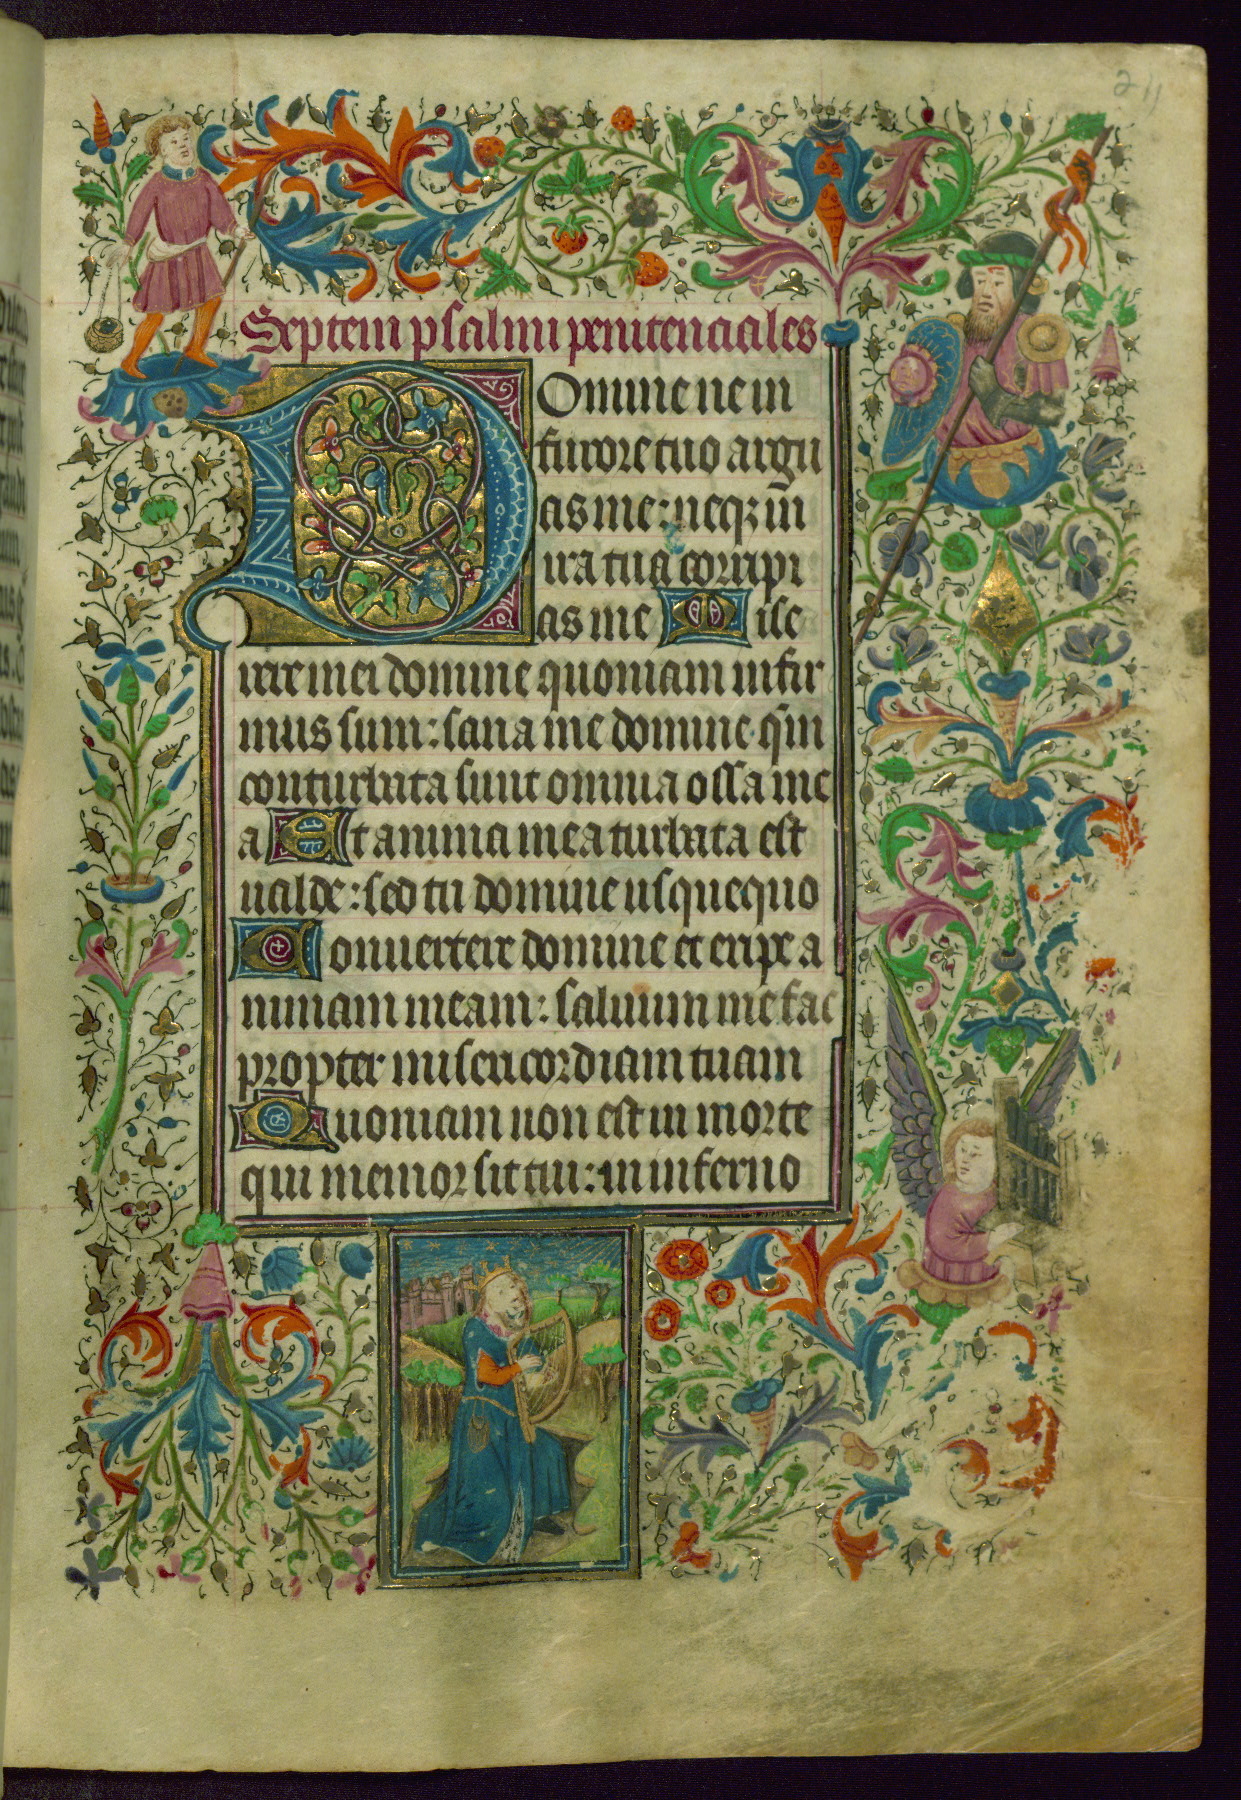 211
Septem psalmi penitenciales
Domine ne in
furore tuo argu
as me: neqz in
ira tua corripi
as me Mise
rere mei domine quoniam infir
mus sum: sana me domine qm̄
conturbata sunt omnia ossa me
a Et anima mea turbata est
ualde: sed tu domine usquequo
Conuertere domine et eripe a
nimam meam: saluum me fac
propter misericordiam tuam
Quoniam non est in morte
qui memor sit tui: in inferno